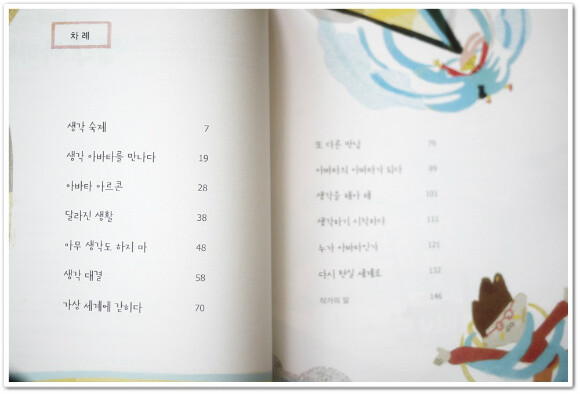 차례
생각 숙제 7
생각 아바타를 만나다 19
아바타 아르콘 28
달라진 생활 38
아무 생각도 하지 마 48
생각 대결 58
가상 세계에 갇히다 70
또 다른 만남 79
아바타의 아바타가 되다 89
생각을 해야 해 101
생각하기 시작하다 111
누가 아바타인가 121
다시 현실 세계로 132
작가의 말 146